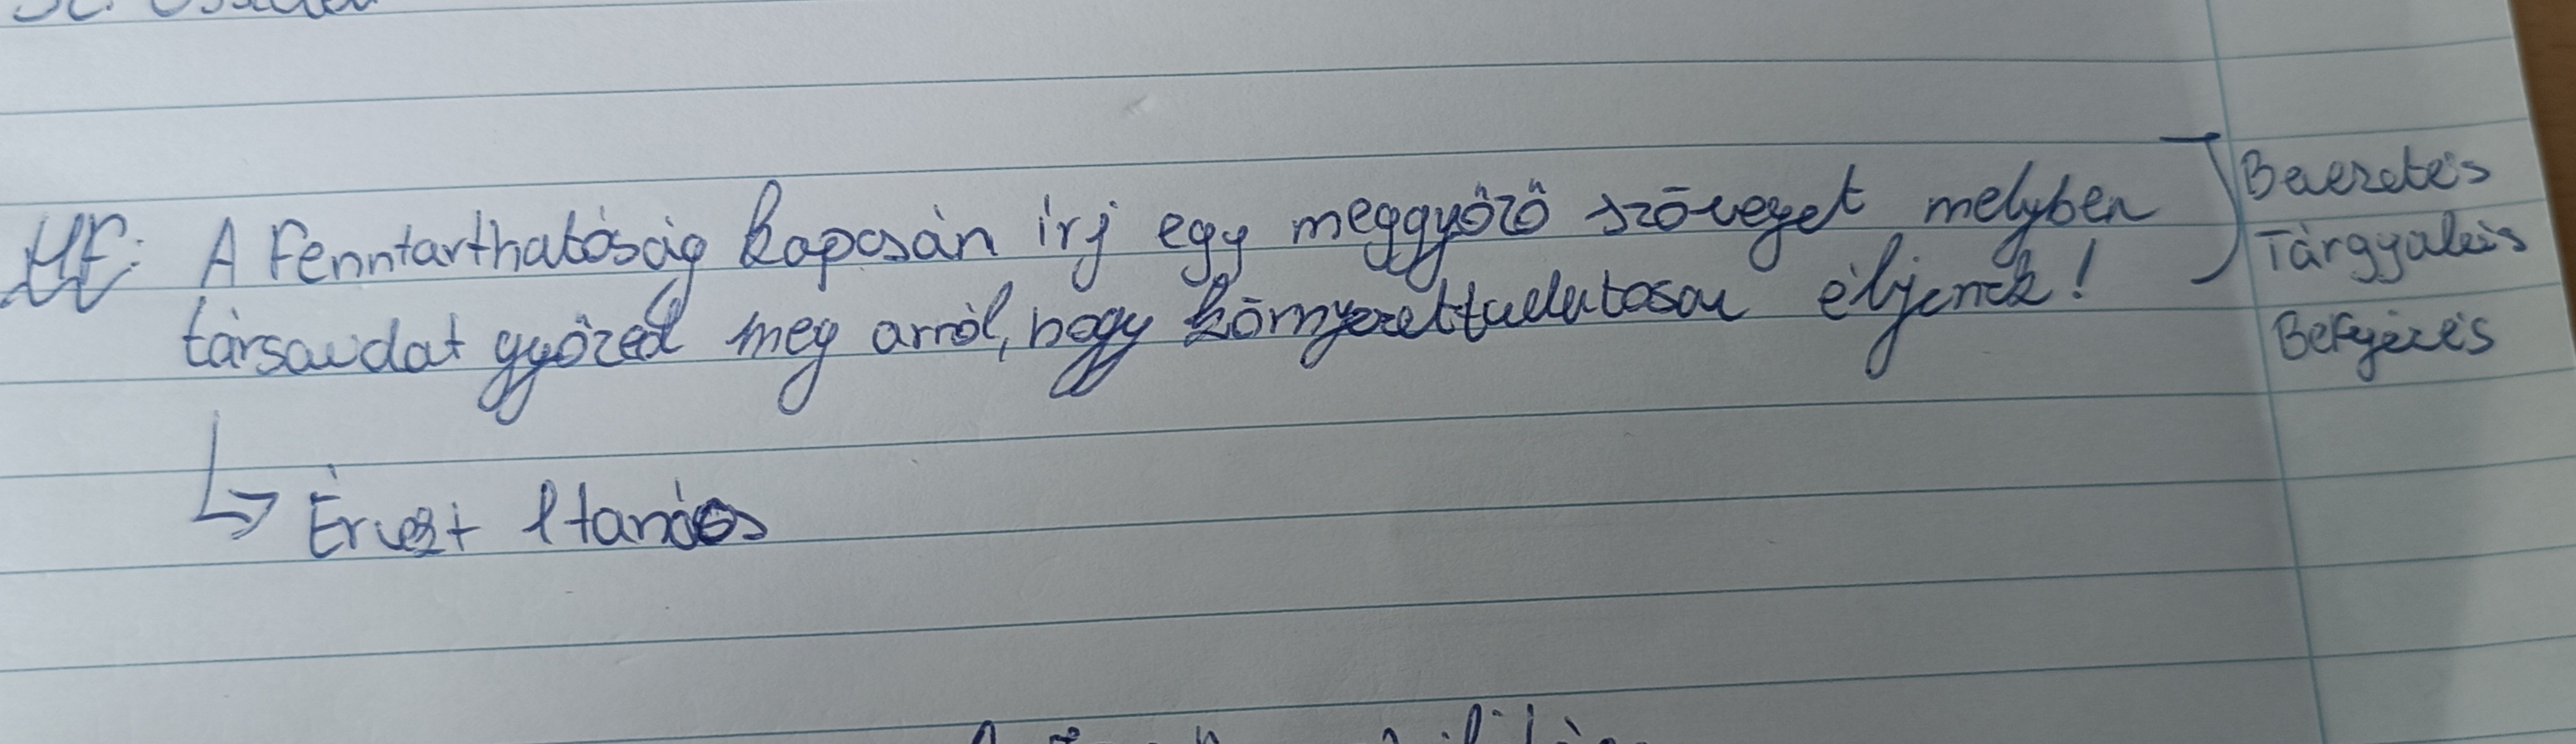 HF: A Fenntarthatóság kapcsán írj egy meggyőző szöveget melyben
társaidat győzed meg arról, hogy környezettudatosan éljenek!
Bevezetés
Tárgyalás
Befejezés
↳ Érvelt